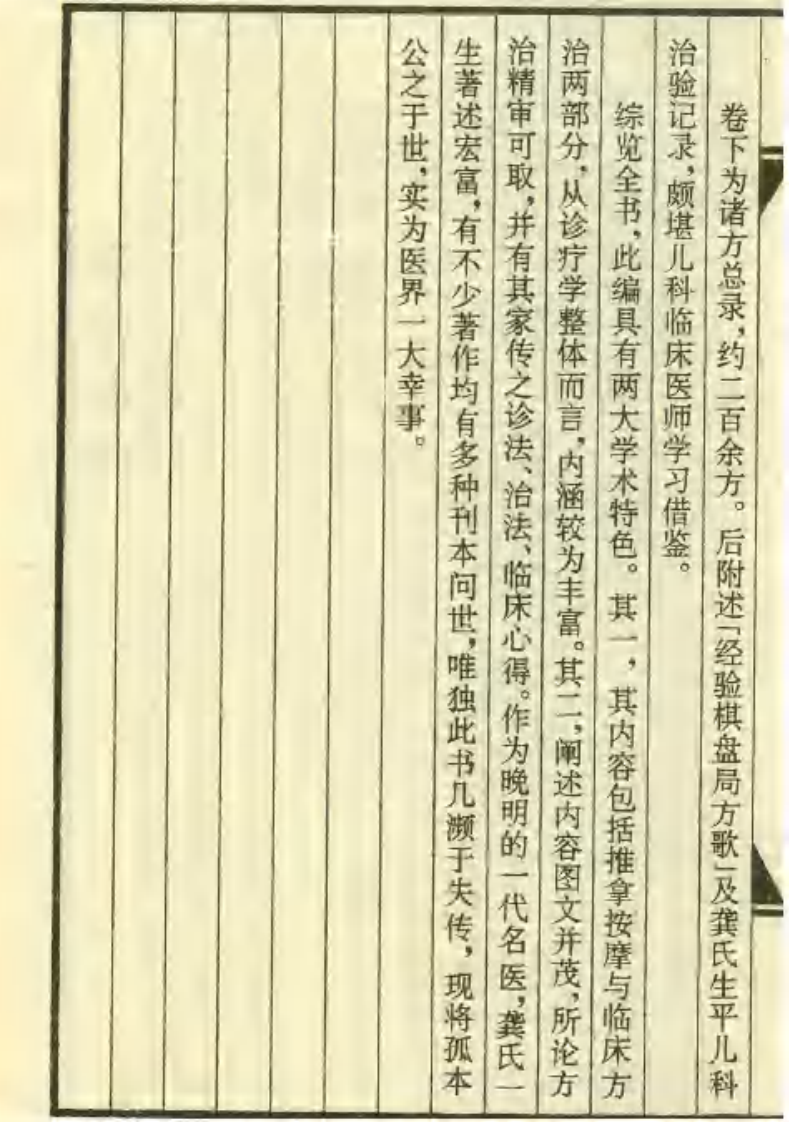 卷下为诸方总录，约二百余方。后附述「经验棋盘局方歌」及龚氏生平儿科
治验记录，颇堪儿科临床医师学习借鉴。
综览全书，此编具有两大学术特色。其一，其内容包括推拿按摩与临床方
治两部分，从诊疗学整体而言，内涵较为丰富。其二，阐述内容图文并茂，所论方
治精审可取，并有其家传之诊法、治法、临床心得。作为晚明的一代名医，龚氏一
生著述宏富，有不少著作均有多种刊本问世，唯独此书几濒于失传，现将孤本
公之于世，实为医界一大幸事。